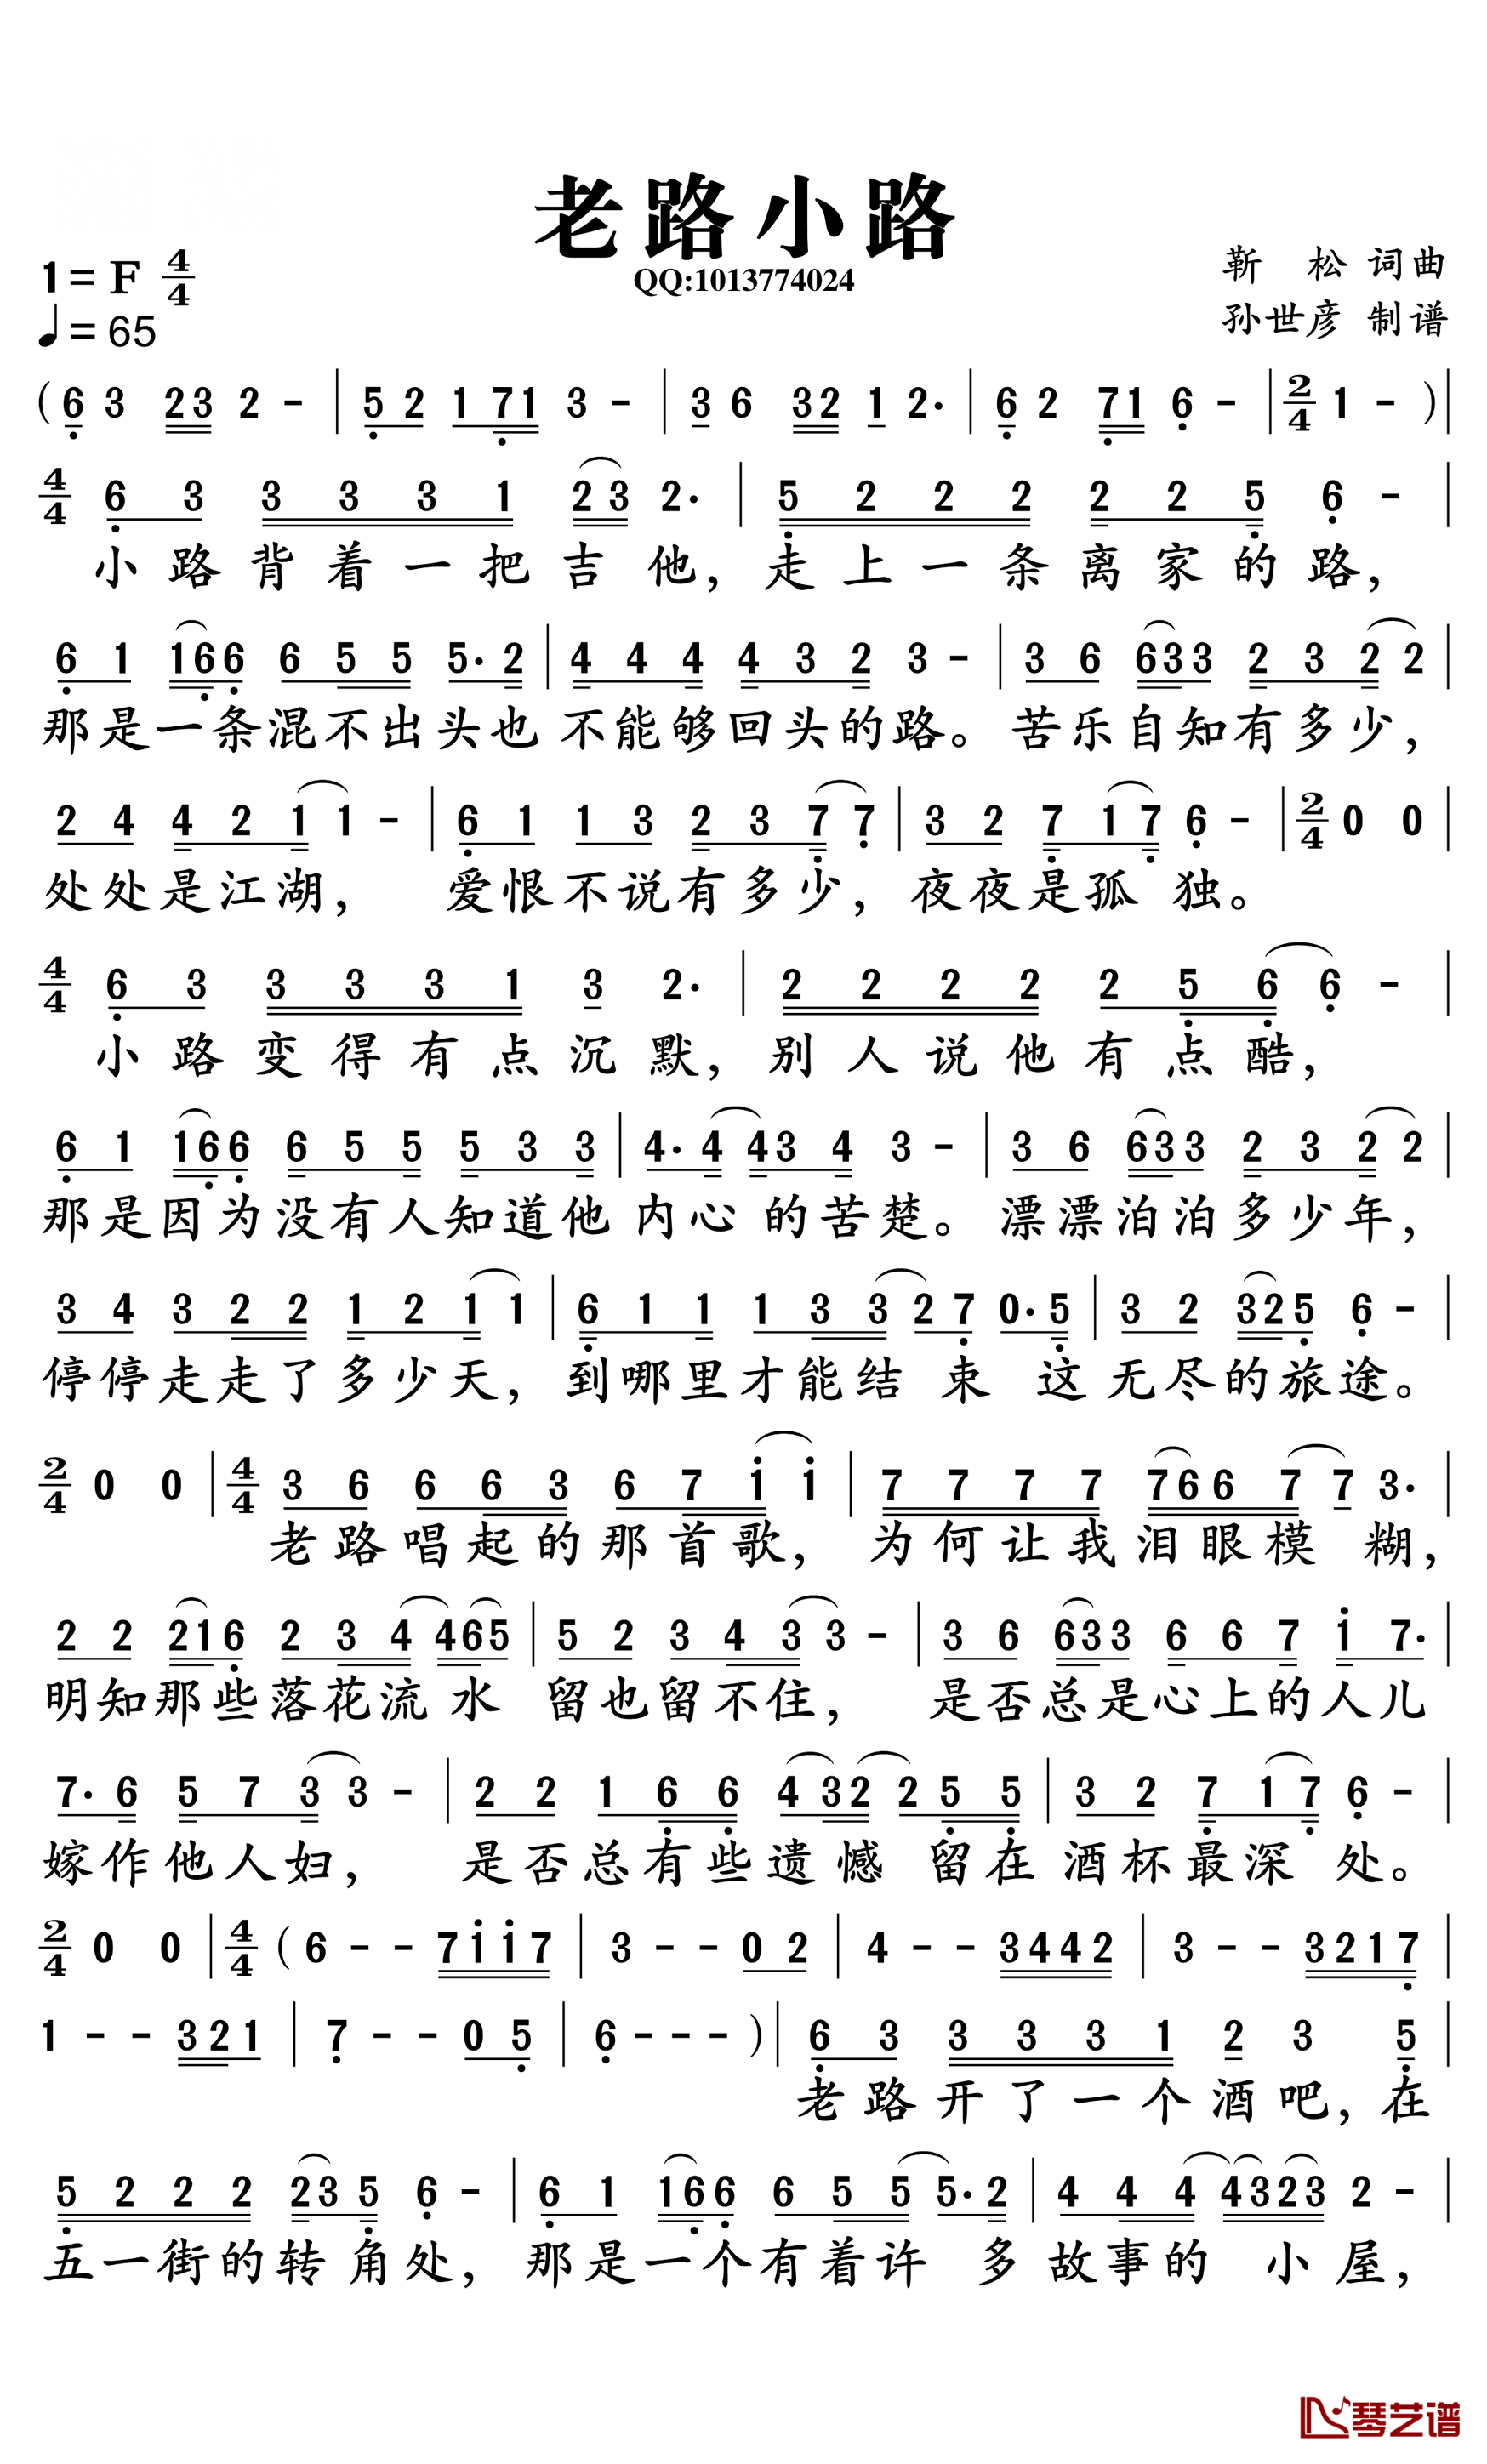 老路小路
QQ:1013774024
1=F 4/4
♩=65
靳 松 词曲
孙世彦 制谱
( 6 3 23 2 - | 5 2 1 71 3 - | 3 6 32 1 2. | 6 2 71 6 - | 2/4 1 - ) |
4/4 6 3 3 3 3 1 2 3 2. | 5 2 2 2 2 2 5 6 - |
小路背着一把吉他，走上一条离家的路，
6 1 166 6 5 5 5. 2 | 4 4 4 4 3 2 3 - | 3 6 633 2 3 2 2 |
那是一条混不出头也不能够回头的路。苦乐自知有多少，
2 4 4 2 1 1 - | 6 1 1 3 2 3 7 7 | 3 2 7 1 7 6 - | 2/4 0 0 |
处处是江湖， 爱恨不说有多少，夜夜是孤 独。
4/4 6 3 3 3 3 1 3 2. | 2 2 2 2 2 5 6 6 - |
小路变得有点沉默，别人说他有点酷，
6 1 166 6 5 5 5 3 3 | 4. 4 43 4 3 - | 3 6 633 2 3 2 2 |
那是因为没有人知道他 内心 的苦楚。漂漂泊泊多少年，
3 4 3 2 2 1 2 1 1 | 6 1 1 1 3 3 2 7 0. 5 | 3 2 325 6 - |
停停走走了多少天，到哪里才能结 束 这 无尽的旅途。
2/4 0 0 | 4/4 3 6 6 6 3 6 7 i i | 7 7 7 7 766 7 7 3. |
老路唱起的那首歌， 为何让我泪眼模 糊，
2 2 216 2 3 4 465 | 5 2 3 4 3 3 - | 3 6 633 6 6 7 i 7. |
明知那些落花流 水 留也留不住， 是否总是心上的人儿
7. 6 5 7 3 3 - | 2 2 1 6 6 4 32 2 5 5 | 3 2 7 1 7 6 - |
嫁作他人妇， 是否总有些遗憾 留在 酒杯最深 处。
2/4 0 0 | 4/4 ( 6 - - 7ii7 | 3 - - 0 2 | 4 - - 3442 | 3 - - 3217 |
1 - - 321 | 7 - - 0 5 | 6 - - - ) | 6 3 3 3 3 1 2 3 5 |
老路开了一个酒吧，在
5 2 2 2 23 5 6 - | 6 1 166 6 5 5 5. 2 | 4 4 4 4323 2 - |
五一街的转角处，那是一个有着许 多 故事的 小屋，
琴艺谱